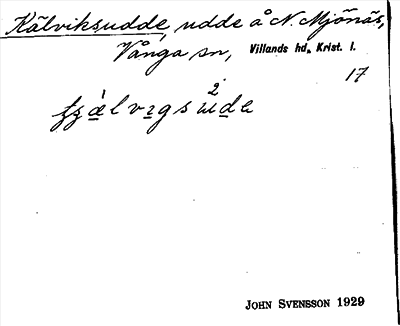 Kälviksudde, udde å N. Mjönäs,
Vånga sn, Villands hd, Krist. l.
17
John Svensson 1929